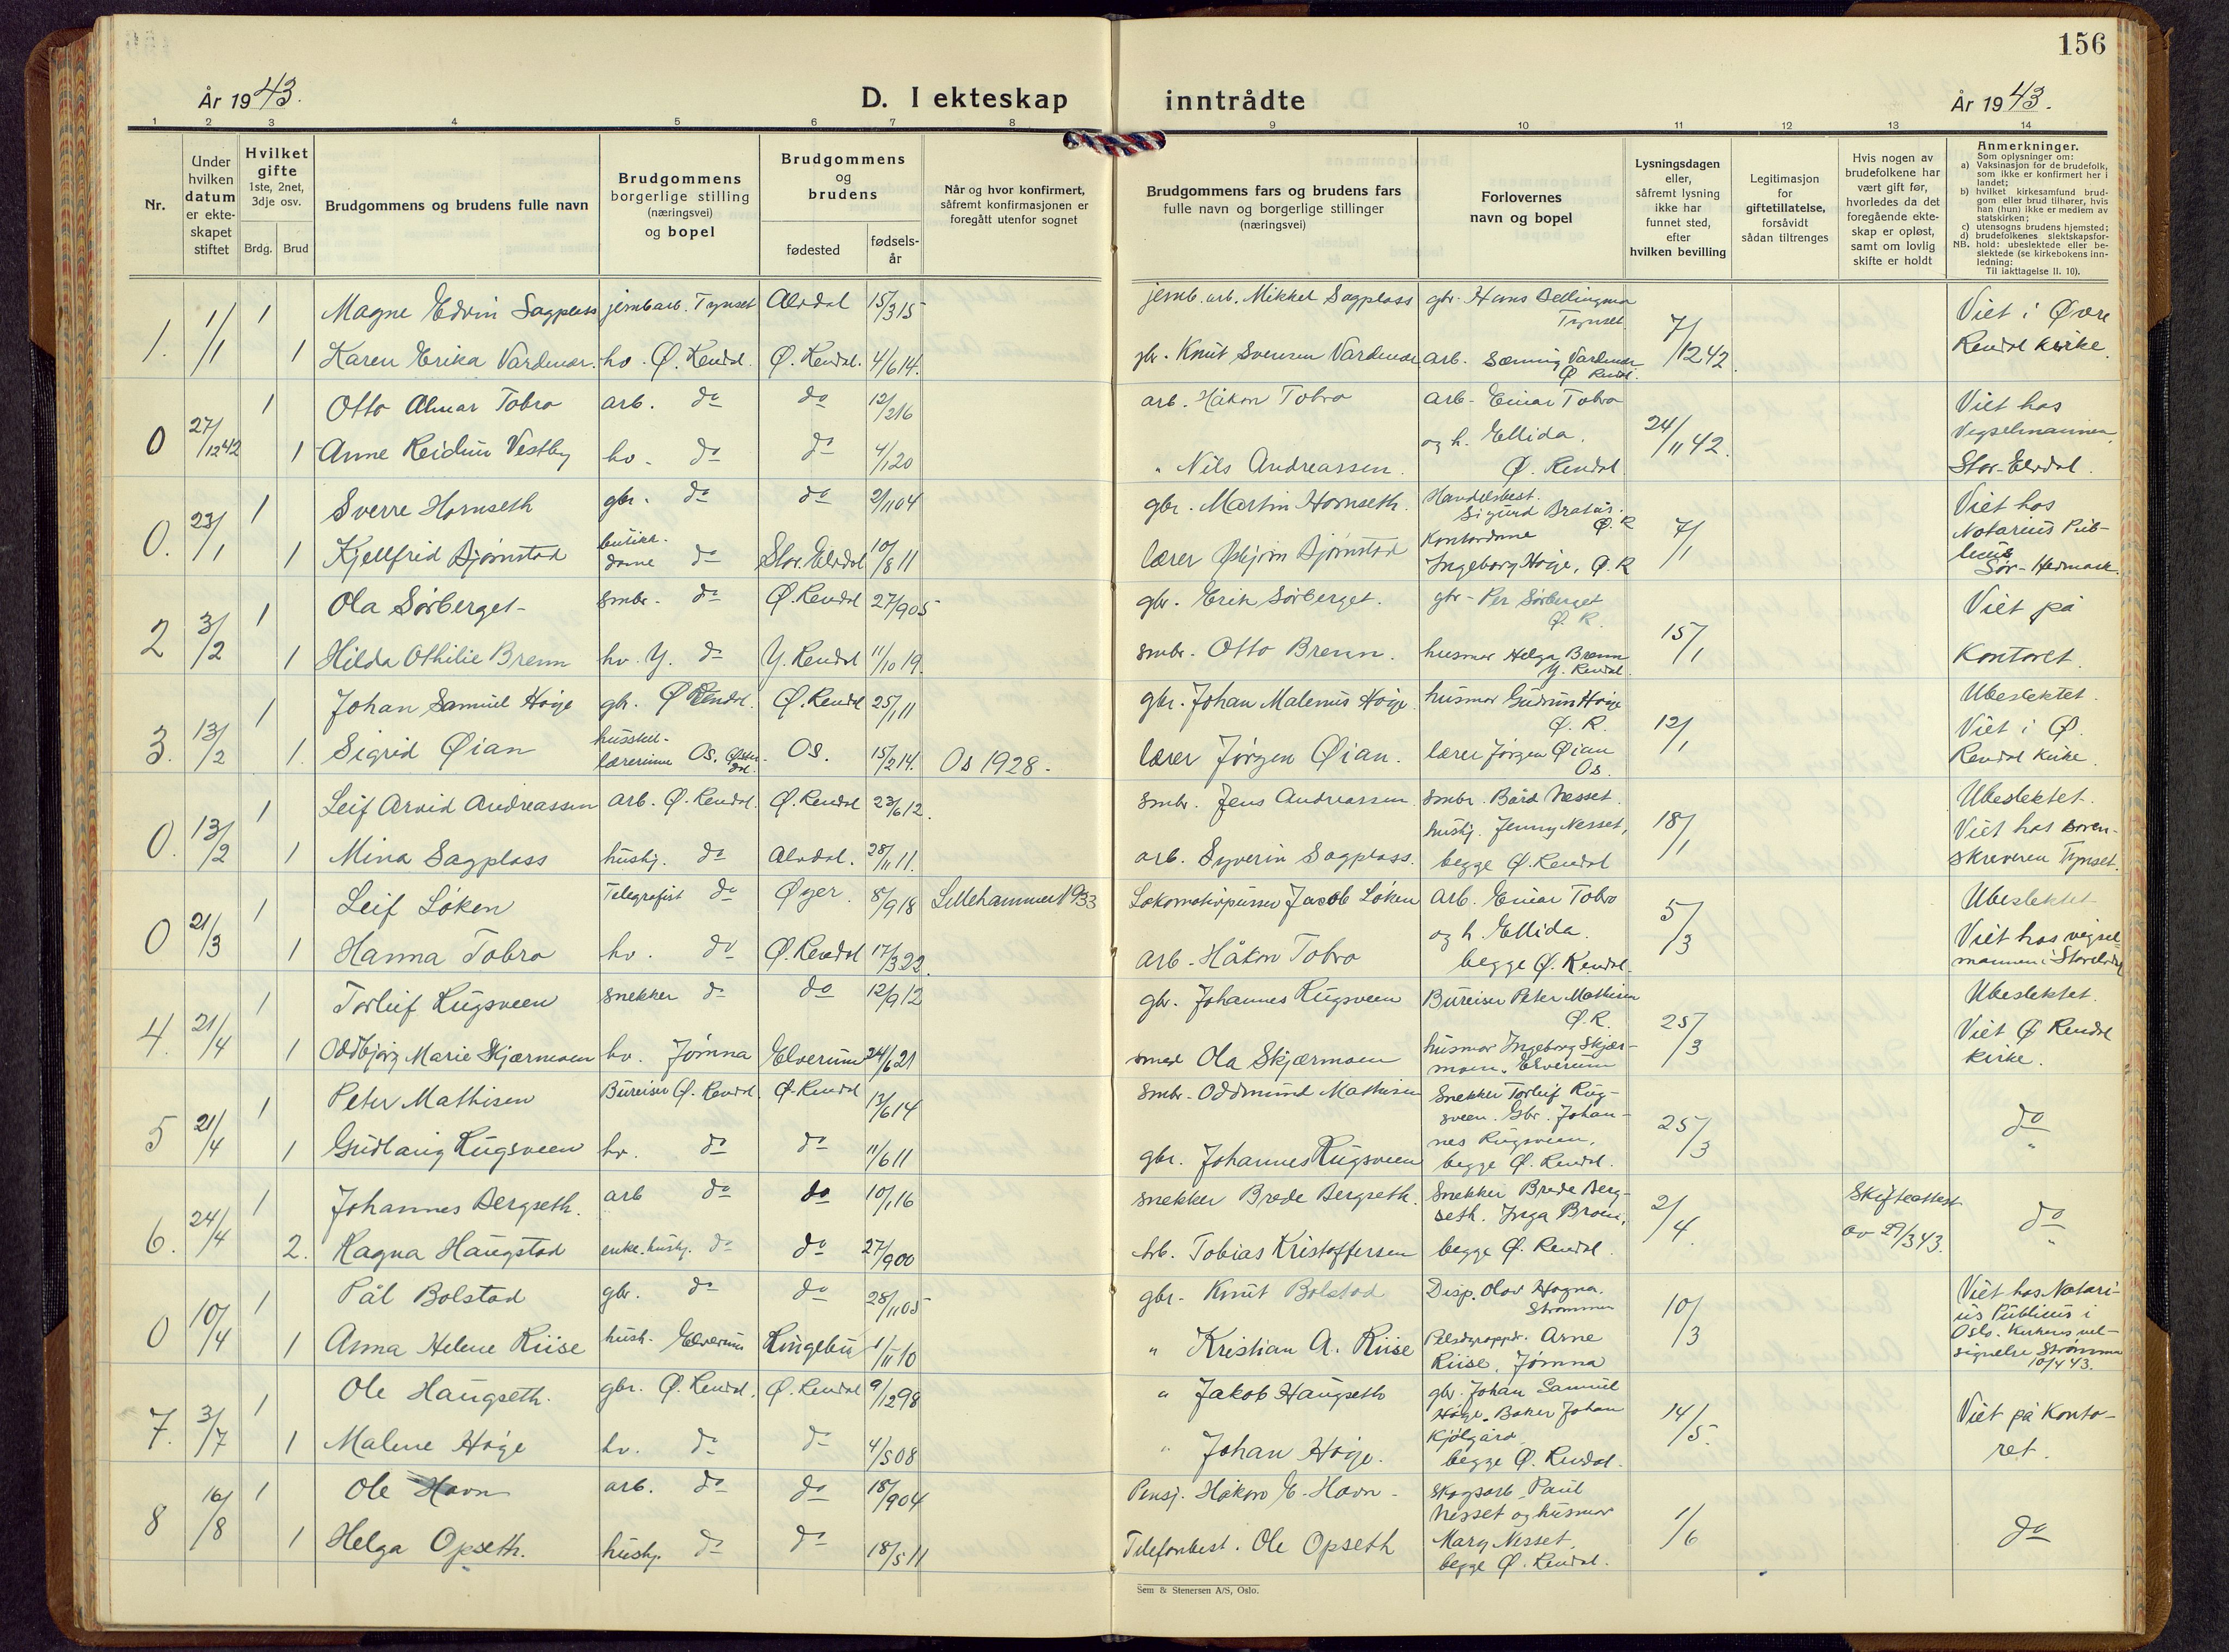 156
År 1943.
D. I ekteskap inntrådte
År 1943.
1 2 3 4 5 6 7 8 9 10 11 12 13 14
Nr.
Under hvilken datum er ekte-skapet stiftet
Hvilket gifte 1ste, 2net, 3dje osv.
Brdg. Brud
Brudgommens og brudens fulle navn
Brudgommens borgerlige stilling (næringsvei) og bopel
Brudgommens og brudens
fødested
fødsels-år
Når og hvor konfirmert, såfremt konfirmasjonen er foregått utenfor sognet
Brudgommens fars og brudens fars fulle navn og borgerlige stillinger (næringsvei)
Forlovernes navn og bopel
Lysningsdagen eller, såfremt lysning ikke har funnet sted, efter hvilken bevilling
Legitimasjon for giftetillatelse, forsåvidt sådan tiltrenges
Hvis nogen av brudefolkene har vært gift før, hvorledes da det foregående ekte-skap er opløst, samt om lovlig skifte er holdt
Anmerkninger.
Som oplysninger om:
a) Vaksinasjon for de brudefolk, som ikke er konfirmert her i landet;
b) hvilket kirkesamfund brud-gom eller brud tilhører, hvis han (hun) ikke er medlem av statskirken;
c) utensogns brudens hjemsted;
d) brudefolkenes slektskapsfor-
NB. hold: ubeslektede eller be-slektede (se kirkebokens inn-ledning:
Til iakttagelse II. 10).
1. 1/1 1 Magne Edvin Sagplass jernb.arb. Tynset Alvdal 15/3 15 jernb. arb. Mikkel Sagplass gbr. Hans Bellingmo Tynset. 7/12 42. Viet i Øvre
1 Karen Erika Vardmoe. hv. Ø. Rendal. Ø. Rendal. 4/6 14. gbr. Knut Svensen Vardmoe arb. Vardmoe Ø Rendl. Rendal kirke.
0 27/12 42 1 Otto Almar Tobro arb. do do 12/2 16 arb. Håkon Tobro arb. Einar Tobro 24/11 42. Viet hos
1 Anne Reidun Vestby hv. do do 4/1 20 " Nils Andreassen. og h. Ellida. Ø. Rendal. Vigselmannen, Stor-Elvdal.
0. 23/1 1 Sverre Hornseth gbr. do do 2/11 04 gbr. Martin Hornseth. Handelsbest. Sigurd Bratås. Ø. R 7/1 Viet hos Notarius Pub-
1 Kjellfrid Bjørnstad butikk-dame do Stor. Elvdal 10/8 11 lærer Bjørnstad Kontordame Ingeborg Høije, Ø. R licus Sør-Hedmark.
2 3/2 1 Ola Sørberget smbr. do Ø. Rendal 27/9 05 gbr. Erik Sørberget. gbr. Per Sørberget Ø. R. 15/1 Viet på
1 Hilda Othilie Brenn hv. Y. do Y. Rendal 11/10 19. smbr. Otto Brenn. husmor Helga Brenn Y. Rendal. Kontoret.
3. 13/2 1 Johan Samuel Høije gbr. Ø Rendal. Ø. Rendal 25/1 11 gbr. Johan Malenus Høije husmor Gudrun Høije Ø. R. 12/1 Ubeslektet. Viet i Ø.
1. Sigrid Øian husstell-lærerinne Os. Østerdal. Os. 15/2 14. Os 1928. lærer Jørgen Øian. lærer Jørgen Øian Os. Rendal kirke.
0. 13/2 1 Leif Arvid Andreassen arb. Ø. Rendal. Ø. Rendal 23/6 12. smbr. Jens Andreassen smbr. Bård Nesset. 18/1 Ubeslektet.
1 Mina Sagplass hushj. do Alvdal. 28/11 11. arb. Syverin Sagplass. hushj. Jenny Nesset, begge Ø. Rendal Viet hos soren-skriveren Tynset.
0 21/3 1 Leif Løken Telegrafist do Øyer. 8/9 18 Lillehammer 1933 Lokomotivpusser Jacob Løken Arb. Einar Tobro 5/3 Ubeslektet
1 Hanna Tobro hv. do Ø. Rendal 17/3 22. arb. Håkon Tobro og h. Ellida. begge Ø. Rendal. Viet hos vigsel-mannen i Storelvdal
4. 21/4 1 Torleif Rugsveen snekker do do 12/9 12 gbr. Johannes Rugsveen Bureiser Peter Mathisen Ø. R. 25/3 Ubeslektet.
1 Oddbjørg Marie Skjærmoen hv. Jømna Elverum 24/6 21 smed Ola Skjærmoen husmor Ingeborg Skjær-moen. Elverum Viet Ø Rendal kirke.
5 21/4 1 Peter Mathisen Bureiser Ø. Rendal. Ø. Rendal 13/6 14 smbr. Oddmund Mathisen Snekker Torleif Rug-sveen. Gbr. Johan- 25/3 do
1 Gudlaug Rugsveen hv. do do 11/6 11 gbr. Johannes Rugsveen nes Rugsveen, begge Ø. Rendal. "
6. 24/4 1 Johannes Bergseth. arb do do 10/1 16 snekker Brede Bergseth. Snekker Brede Berg-seth. Inga 2/4. Skifteattest do
2. Ragna Haugstad enke. hushj. do do 27/9 00 arb. Tobias Kristoffersen begge Ø. Rendal. av 29/3 43. "
0 10/4 1 Pål Bolstad gbr. do do 28/11 05 gbr. Knut Bolstad Disp. Olav Hogna. Strømmen 10/3 Viet hos Notari-us Publicus i
1 Anna Helene Riise hush. Elverum Ringebu 1/11 10 " Kristian A. Riise Arne Riise, Jømna Oslo. Kirkens vel-signelse Strømmen 10/4 43.
7. 3/7 1 Ole Haugseth. gbr. Ø. Rendal. Ø. Rendal 9/12 98 " Jakob Haugseth gbr. Johan Samuel Høije. Baker Johan 14/5. Viet på Konto-
1 Malene Høije hv. do do 4/5 08 " Johan Høije. Kjølgård begge Ø. Rendal. ret.
8 16/8 1 Ole Havn arb. do do 18/9 04 Pensj. Håkon E. Havn. Skogsarb. Paul Nesset og husmor 1/6 do
1 Helga Opseth. hushj. do do 18/5 11 Telefonbest. Ole Opseth Mary Nesset, begge Ø. Rendal.
Sem & Stenersen A/S, Oslo.